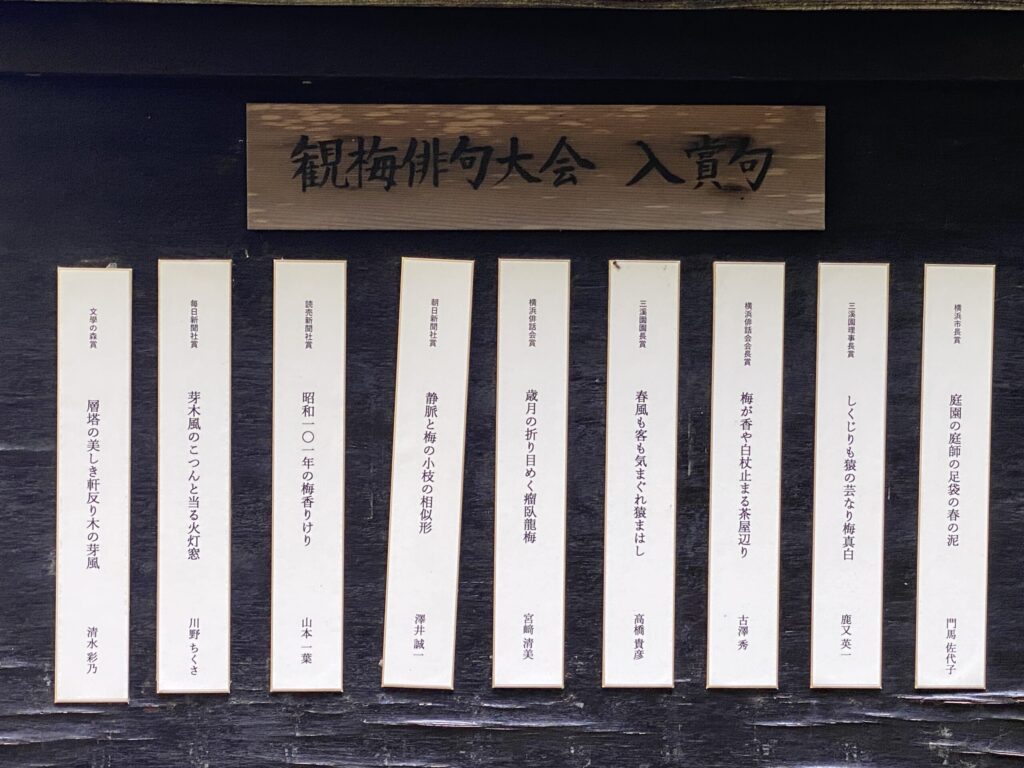 観梅俳句大会 入賞句
横浜市長賞
庭園の庭師の足袋の春の泥
門馬 佐代子
三溪園理事長賞
しくじりも猿の芸なり梅真白
鹿又 英一
横浜俳話会会長賞
梅が香や白杖止まる茶屋辺り
古澤 秀
三溪園園長賞
春風も客も気まぐれ猿まはし
高橋 貴彦
横浜俳話会賞
歳月の折り目めく瘤臥龍梅
宮﨑 清美
朝日新聞社賞
静脈と梅の小枝の相似形
澤井 誠一
読売新聞社賞
昭和一〇一年の梅香りけり
山本 一葉
毎日新聞社賞
芽木風のこつんと当る火灯窓
川野 ちくさ
文學の森賞
層塔の美しき軒反り木の芽風
清水 彩乃